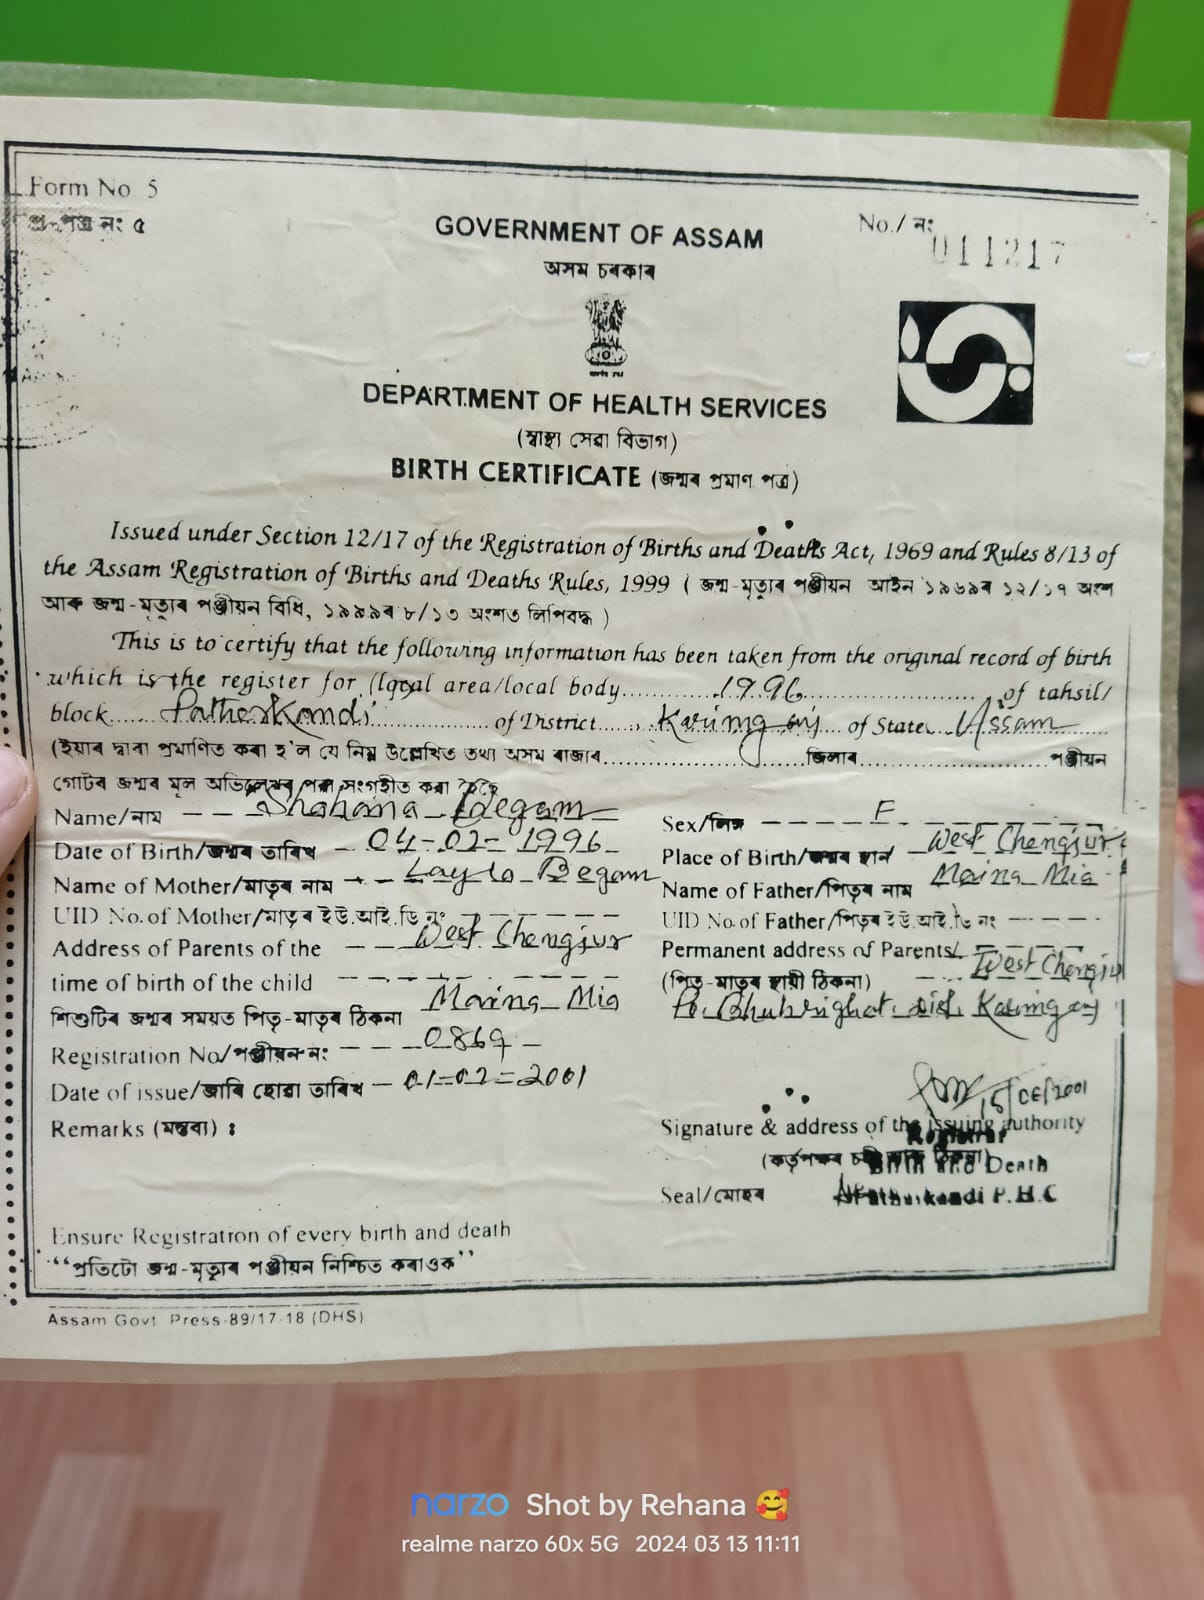 Form No. 5
প্ৰ-পত্ৰ নং ৫
No./ নং
011217
GOVERNMENT OF ASSAM
অসম চৰকাৰ
DEPARTMENT OF HEALTH SERVICES
(স্বাস্থ্য সেৱা বিভাগ)
BIRTH CERTIFICATE (জন্মৰ প্ৰমাণ পত্ৰ)
Issued under Section 12/17 of the Registration of Births and Deaths Act, 1969 and Rules 8/13 of
the Assam Registration of Births and Deaths Rules, 1999 ( জন্ম-মৃত্যুৰ পঞ্জীয়ন আইন ১৯৬৯ৰ ১২/১৭ অংশ
আৰু জন্ম-মৃত্যুৰ পঞ্জীয়ন বিধি, ১৯৯৯ৰ ৮/১৩ অংশত লিপিবদ্ধ )
This is to certify that the following information has been taken from the original record of birth
which is the register for (local area/local body 1996 of tahsil/
block Patherkandi of District Karimganj of State Assam
(ইয়াৰ দ্বাৰা প্ৰমাণিত কৰা হ'ল যে নিম্ন উল্লেখিত তথ্য অসম ৰাজ্যৰ জিলাৰ পঞ্জীয়ন
গোটৰ জন্মৰ মূল সংগ্ৰহীত কৰা হৈছে
Name/নাম Shahana Begam
Sex/লিঙ্গ F
Date of Birth/জন্মৰ তাৰিখ 04-02-1996
Place of Birth/জন্মৰ স্থান West Chengjur
Name of Mother/মাতৃৰ নাম Layla Begam
Name of Father/পিতৃৰ নাম Maina Mia
UID No. of Mother/মাতৃৰ ইউ.আই.ডি নং
UID No. of Father/পিতৃৰ ইউ.আই.ডি নং
Address of Parents of the West Chengjur
Permanent address of Parents/ West Chengjur
time of birth of the child
(পিতৃ-মাতৃৰ স্থায়ী ঠিকনা)
শিশুটিৰ জন্মৰ সময়ত পিতৃ-মাতৃৰ ঠিকনা Maina Mia
Karimganj
Registration No/পঞ্জীয়ন নং 0869
Date of issue/জাৰি হোৱা তাৰিখ 01-02-2001
Remarks (মন্তব্য) :
Signature & address of the issuing authority
Registrar
Birth and Death
Seal/মোহৰ
P.H.C
Ensure Registration of every birth and death
“প্ৰতিটো জন্ম-মৃত্যুৰ পঞ্জীয়ন নিশ্চিত কৰাওক”
Assam Govt. Press-89/17-18 (DHS)
narzo Shot by Rehana 🥰
realme narzo 60x 5G 2024 03 13 11:11